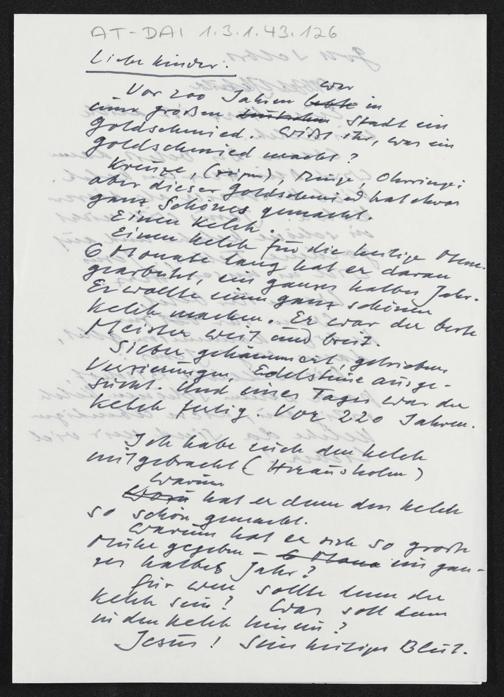 AT-DAI 1.3.1.43.126
Liebe Kinder!
Vor 200 Jahren lebte war in
einer großen Stadt ein
Goldschmied. Wißt ihr, was ein
Goldschmied macht?
Kreuze, (zeigen), Ringe, Ohrringe
aber dieser Goldschmied hat etwas
ganz Schönes gemacht.
Einen Kelch.
Einen Kelch für die heilige Messe.
6 Monate lang hat er daran
gearbeitet, ein ganzes halbes Jahr.
Er wollte einen ganz schönen
Kelch machen. Er war der beste
Meister weit und breit.
Silber, gehämmert, getrieben,
Verzierungen, Edelsteine ausge-
sucht. Und eines Tages war der
Kelch fertig. Vor 220 Jahren.
Ich habe euch den Kelch
mitgebracht (Herausholen)
Warum
hat er denn den Kelch
so schön gemacht.
Warum hat er sich so große
Mühe gegeben – 6 Mona ein gan-
zes halbes Jahr?
Für wen sollte denn der
Kelch sein? Was soll denn
in den Kelch hinein?
Jesus! Sein heiliges Blut.